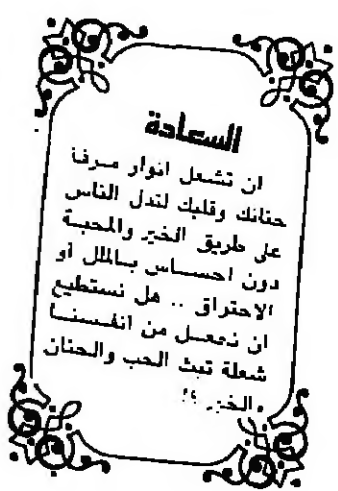 السعادة
ان تشعل انوار مرفأ
حنانك وقلبك لتدل الناس
على طريق الخير والمحبة
دون احساس بالملل أو
الاحتراق .. هل نستطيع
ان نجعل من انفسنا
شعلة تبث الحب والحنان
والخير ؟!